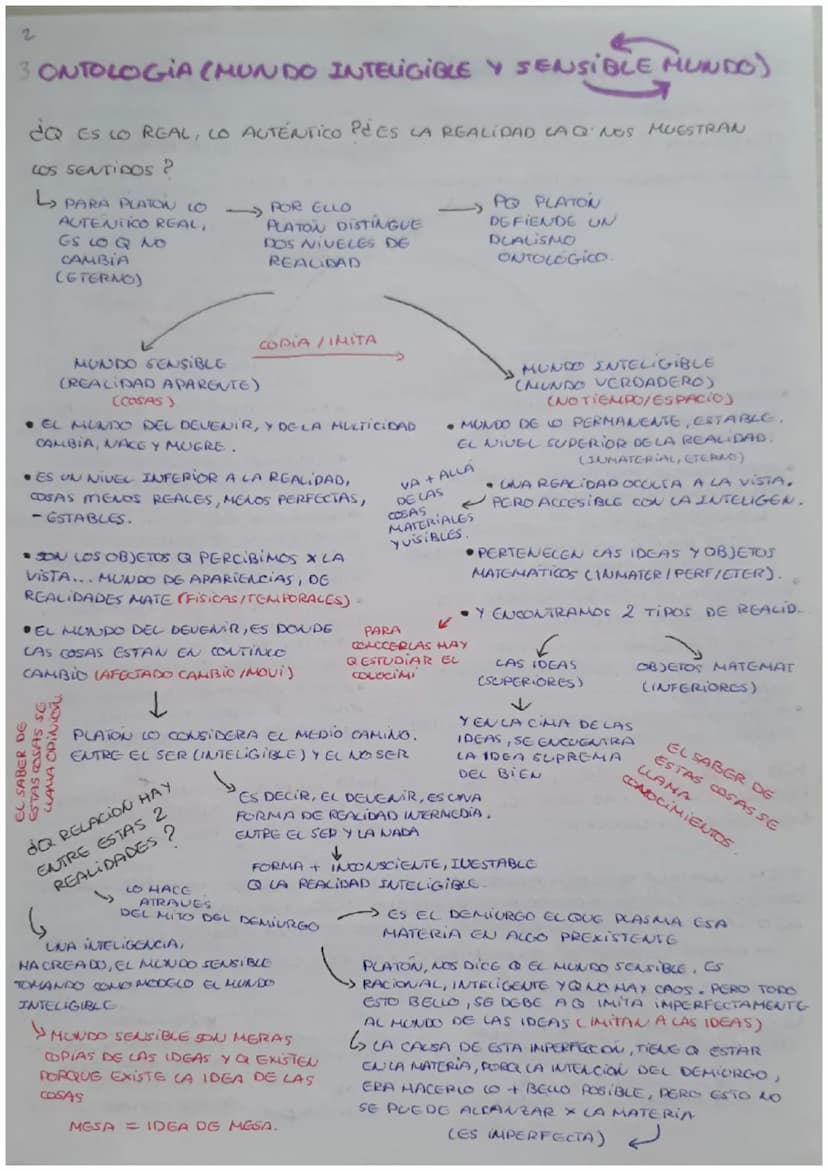 2
3 ONTOLOGÍA (MUNDO INTELIGIBLE Y SENSIBLE MUNDO)
¿Q ES LO REAL, LO AUTÉNTICO? ¿ES LA REALIDAD LA Q NOS MUESTRAN
LOS SENTIDOS?
PARA PLATÓN LO
AUTENTICO REAL,
ES LO Q NO
CAMBIA
(ETERNO)
POR ELLO
PLATÓN DISTINGUE
DOS NIVELES DE
REALIDAD
PQ PLATÓN
DEFIENDE UN
DUALISMO
ONTOLÓGICO.
COPIA / IMITA
MUNDO SENSIBLE
(REALIDAD APARENTE)
(COSAS)
• EL MUNDO DEL DEVENIR, Y DE LA MULTICIDAD
CAMBIA, NACE Y MUERE.
• ES UN NIVEL INFERIOR A LA REALIDAD,
COSAS MENOS REALES, MENOS PERFECTAS,
- ESTABLES.
• SON LOS OBJETOS Q PERCIBIMOS X LA
VISTA... MUNDO DE APARIENCIAS, DE
REALIDADES MATE (FÍSICAS/TEMPORALES)
• EL MUNDO DEL DEVENIR, ES DONDE
LAS COSAS ESTAN EN CONTINUO
CAMBIO (AFECTADO CAMBIO/MOVI)
MUNDO INTELIGIBLE
(MUNDO VERDADERO)
(NO TIEMPO/ESPACIO)
• MUNDO DE LO PERMANENTE, ESTABLE.
EL NIVEL SUPERIOR DE LA REALIDAD.
(INMATERIAL, ETERNO)
• UNA REALIDAD OCULTA A LA VISTA.
PERO ACCESIBLE CON LA INTELIGEN.
VA + ALLÁ
DE LAS
COSAS
MATERIALES
Y VISIBLES.
• PERTENECEN LAS IDEAS Y OBJETOS
MATEMATICOS (INMATER/PERF/ETER).
• Y ENCONTRAMOS 2 TIPOS DE REALID.
PARA
CONOCERLAS HAY
Q ESTUDIAR EL
COLOCIMI
LAS IDEAS
(SUPERIORES)
OBJETOS MATEMAT
(INFERIORES)
Y EN LA CIMA DE LAS
IDEAS, SE ENCUENTRA
LA IDEA SUPREMA
DEL BIEN
EL SABER DE
ESTAS COSAS SE
LLAMA
CONOCIMIENTOS.
EL SABER DE
ESTAS COSAS SE
LLAMA OPINIÓN
PLATÓN LO CONSIDERA EL MEDIO CAMINO.
ENTRE EL SER (INTELIGIBLE) Y EL NO SER
ES DECIR, EL DEVENIR, ES UNA
FORMA DE REALIDAD INTERMEDIA.
ENTRE EL SER Y LA NADA
FORMA + INCONSCIENTE, INESTABLE
Q LA REALIDAD INTELIGIBLE.
¿Q RELACIÓN HAY
ENTRE ESTAS 2
REALIDADES?
LO HACE
ATRAVES
DEL MITO DEL DEMIURGO
ES EL DEMIURGO EL QUE PLASMA ESA
MATERIA EN ALGO PREXISTENTE
UNA INTELIGENCIA,
HA CREADO, EL MUNDO SENSIBLE
TOMANDO COMO MODELO EL MUNDO
INTELIGIBLE
MUNDO SENSIBLE SON MERAS
COPIAS DE LAS IDEAS Y Q EXISTEN
PORQUE EXISTE LA IDEA DE LAS
COSAS
MESA = IDEA DE MESA.
PLATÓN, NOS DICE Q EL MUNDO SENSIBLE, ES
RACIONAL, INTELIGENTE Y Q NO HAY CAOS. PERO TODO
ESTO BELLO, SE DEBE A Q IMITA IMPERFECTAMENTE
AL MUNDO DE LAS IDEAS (IMITAN A LAS IDEAS)
LA CAUSA DE ESTA IMPERFECCIÓN, TIENE Q ESTAR
EN LA MATERIA, PORQ LA INTENCIÓN DEL DEMIURGO,
ERA HACERLO LO + BELLO POSIBLE, PERO ESTO NO
SE PUEDE ALCANZAR X LA MATERIA
(ES IMPERFECTA)